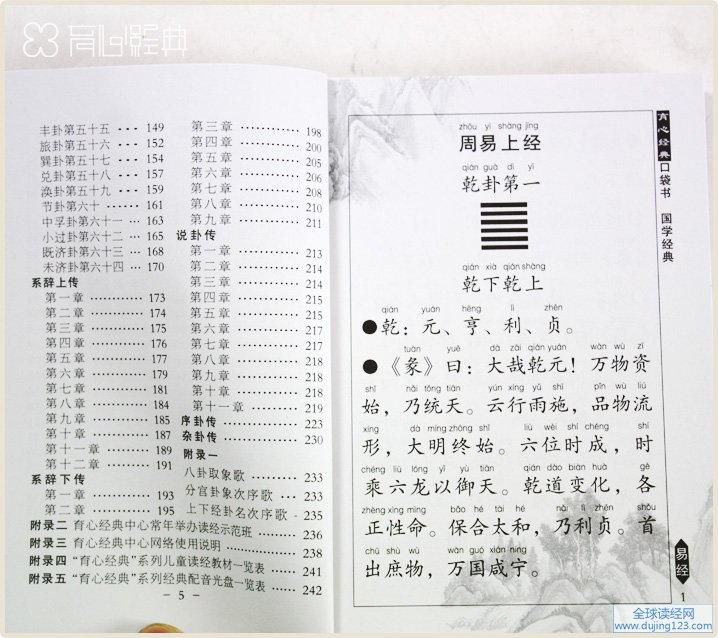 育心经典
丰卦第五十五 --- 149
旅卦第五十六 --- 152
巽卦第五十七 --- 154
兑卦第五十八 --- 157
涣卦第五十九 --- 159
节卦第六十 ······ 161
中孚卦第六十一 ··· 163
小过卦第六十二 ··· 165
既济卦第六十三 ··· 168
未济卦第六十四 ··· 170
系辞上传
第一章 ············ 173
第二章 ············ 174
第三章 ············ 175
第四章 ············ 176
第五章 ············ 177
第六章 ············ 179
第七章 ············ 181
第八章 ············ 184
第九章 ············ 185
第十章 ············ 187
第十一章 ········· 189
第十二章 ········· 191
系辞下传
第一章 ············ 193
第二章 ············ 195
第三章 ············ 198
第四章 ············ 200
第五章 ············ 205
第六章 ············ 206
第七章 ············ 208
第八章 ············ 210
第九章 ············ 211
说卦传
第一章 ············ 213
第二章 ············ 214
第三章 ············ 214
第四章 ············ 215
第五章 ············ 215
第六章 ············ 217
第七章 ············ 217
第八章 ············ 218
第九章 ············ 218
第十章 ············ 218
第十一章 ········· 219
序卦传 ············ 223
杂卦传 ············ 230
附录一
八卦取象歌 ······ 233
分宫卦象次序歌 ··· 233
上下经卦名次序歌 ··· 235
附录二 育心经典中心常年举办读经示范班 ········· 236
附录三 育心经典中心网络使用说明 ············ 238
附录四 “育心经典”系列儿童读经教材一览表 ······ 241
附录五 “育心经典”系列经典配音光盘一览表 ······ 242
– 5 –
zhōu yì shàng jīng
周易上经
qián guà dì yī
乾卦第一
qián xià qián shàng
乾下乾上
qián yuán hēng lì zhēn
●乾：元、亨、利、贞。
tuàn yuē dà zāi qián yuán wàn wù zī
●《彖》曰：大哉乾元！万物资
shǐ nǎi tǒng tiān yún xíng yǔ shī pǐn wù liú
始，乃统天。云行雨施，品物流
xíng dà míng zhōng shǐ liù wèi shí chéng shí
形，大明终始。六位时成，时
chéng liù lóng yǐ yù tiān qián dào biàn huà gè
乘六龙以御天。乾道变化，各
zhèng xìng mìng bǎo hé tài hé nǎi lì zhēn shǒu
正性命。保合太和，乃利贞。首
chū shù wù wàn guó xián níng
出庶物，万国咸宁。
育心经典口袋书 国学经典
易经
1
全球读经网
www.dujing123.com